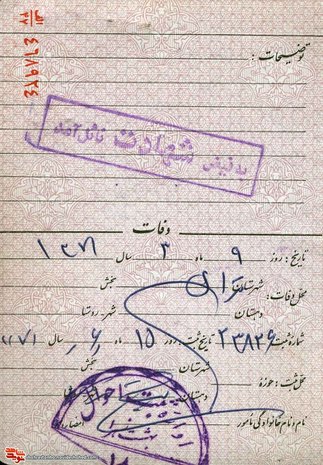 الف
۴۷
۴۶۸۹۲۴
توضیحات :
به فیض شهادت نائل آمد
وفات
تاریخ : روز ۹ ماه ۳ سال ۱۳۷۱
محل وفات : شهرستان بخش
دهستان شهر - روستا
شماره ثبت ۲۳۸۲۶ تاریخ ثبت : روز ۱۵ ماه ۶ سال ۱۳۷۱
محل ثبت : حوزه شهرستان بخش
دهستان
نام و نام خانوادگی مأمور امضاء
ثبت احوال